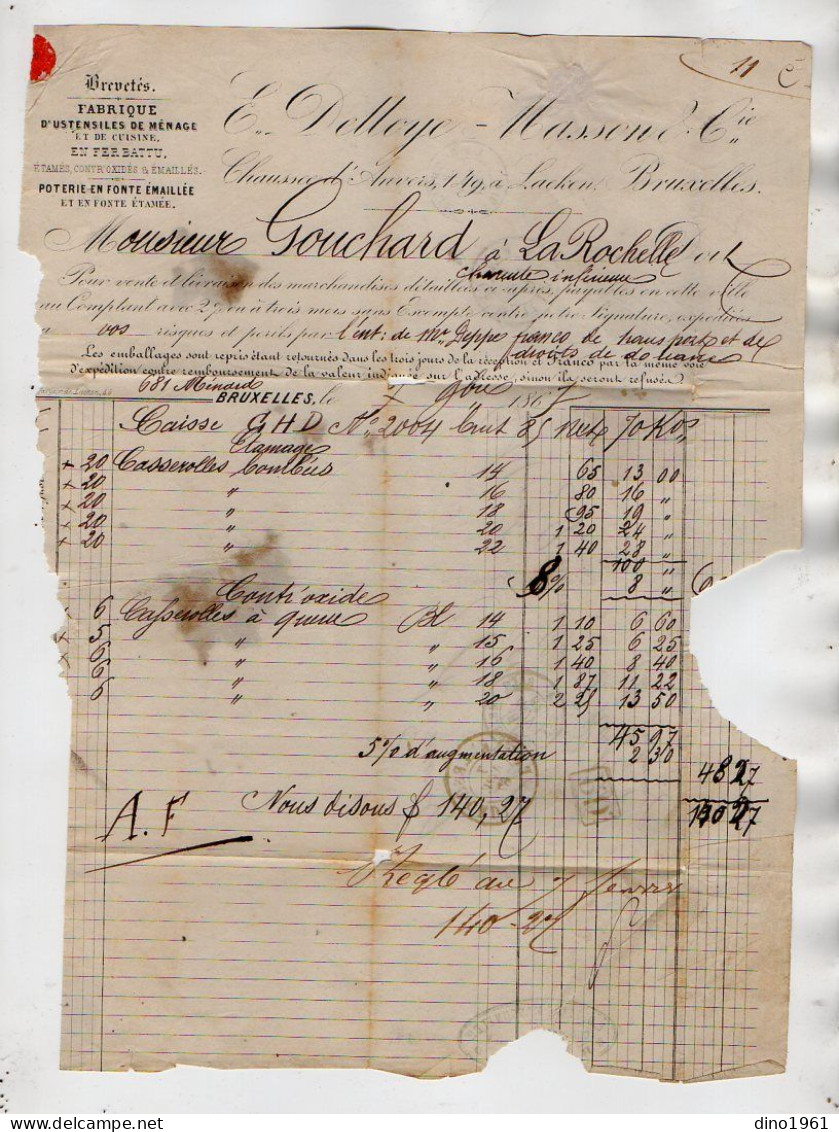 11
Brevetés.
FABRIQUE
D'USTENSILES DE MÉNAGE
ET DE CUISINE,
EN FER BATTU,
ÉTAMÉS, CONTR'OXIDÉS & ÉMAILLÉS.
POTERIE EN FONTE ÉMAILLÉE
ET EN FONTE ÉTAMÉE.
E. Delloye-Masson & Cie
Chaussée d'Anvers, 149, à Laeken, Bruxelles.
Monsieur Gouchard à La Rochelle Doit
Charente inférieure
Pour vente et livraison des marchandises détaillées ci-après, payables en cette ville
au Comptant avec 2% ou à trois mois sans Escompte contre notre Signature, expédiées
à vos risques et perils par l'ent: de Mr Peppe franco de transport et de
droits de douane
Les emballages sont repris étant retournés dans les trois jours de la réception et Franco par la même voie
d'expédition contre remboursement de la valeur indiquée sur l'adresse, sinon ils seront refusés.
681 Ménard
BRUXELLES, le 7 9bre 1867
Caisse GHD No 2004 brut 85 Net 70 Kos
Etamage
+ 20 Casserolles bombées 14 65 13 00
+ 20 " 16 80 16 "
+ 20 " 18 95 19 "
+ 20 " 20 1 20 24 "
+ 20 " 22 1 40 28 "
100 "
8% 8 "
Contr'oxide
6 Casserolles à queue Bl 14 1 10 6 60
5 " " 15 1 25 6 25
6 " " 16 1 40 8 40
6 " " 18 1 87 11 22
6 " " 20 2 25 13 50
45 97
5% d'augmentation 2 30
48 27
140 27
A.F Nous disons f 140,27
Reglé au 7
140-27
dino1961